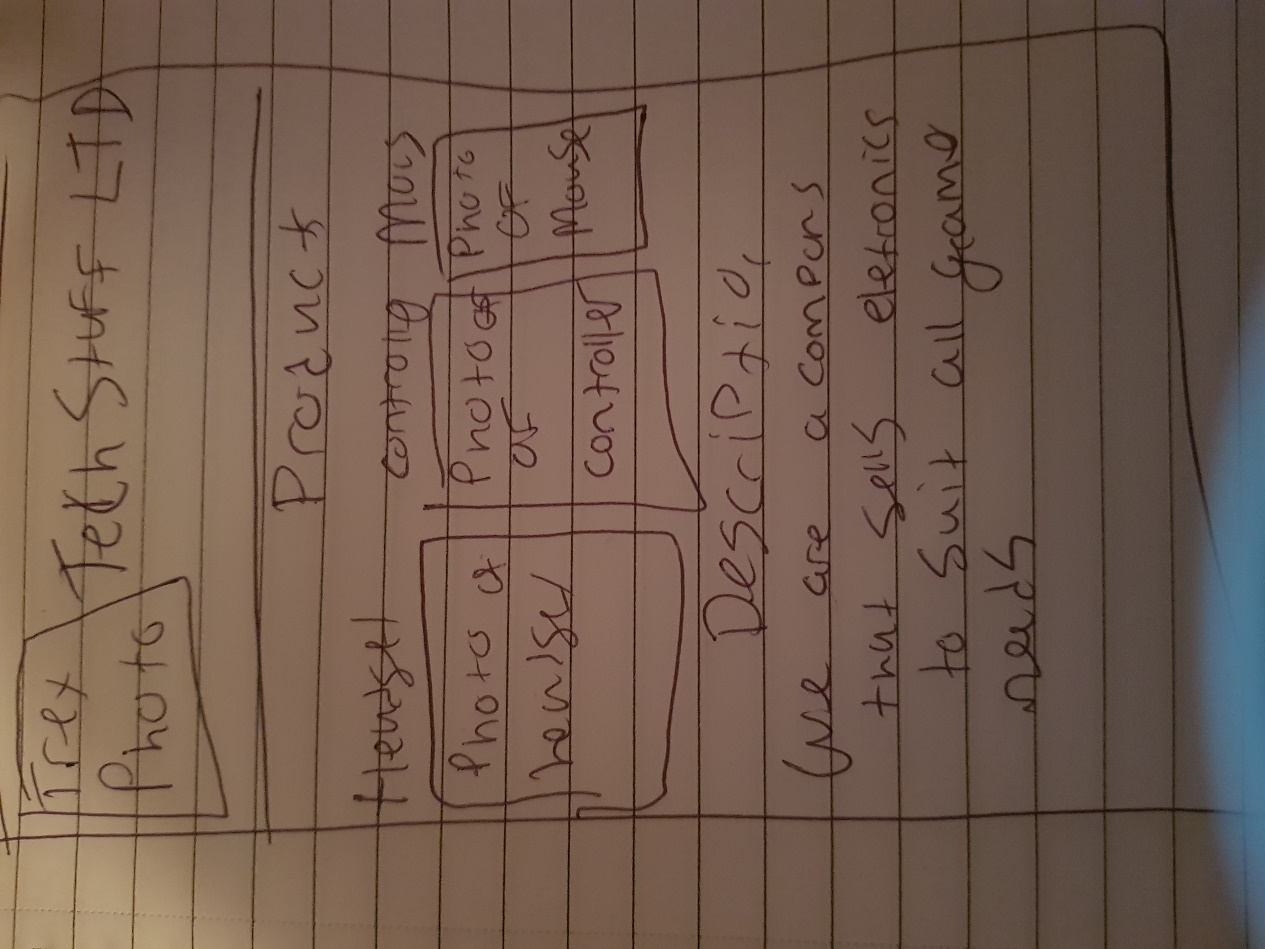 Trex
Photo
Tech Stuff LTD
Product
Headset
Photo of
headset
Controlle
Photo of
of
controller
Mous
Photo
OF
Mouse
Descriptio
we are a compans
that sells eletronics
to suit all game
needs